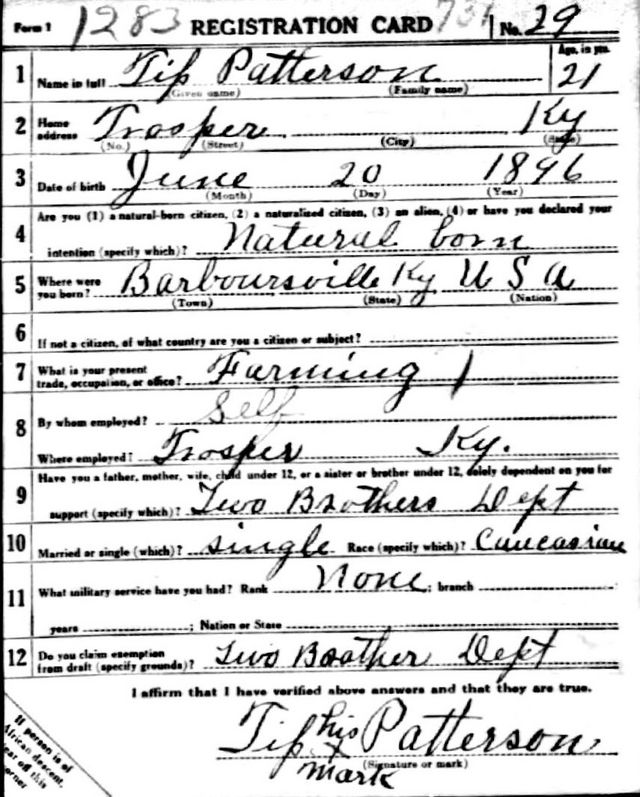 Form 1 1283 REGISTRATION CARD 731 No. 29
1 Name in full Tip Patterson Age, in yrs. 21
(Given name) (Family name)
2 Home address Trosper Ky
(No.) (Street) (City) (State)
3 Date of birth June 20 1896
(Month) (Day) (Year)
Are you (1) a natural-born citizen, (2) a naturalized citizen, (3) an alien, (4) or have you declared your
4 intention (specify which)? Natural born
5 Where were you born? Barboursville Ky U S A
(Town) (State) (Nation)
6 If not a citizen, of what country are you a citizen or subject?
7 What is your present trade, occupation, or office? Farming
8 By whom employed? Self
Where employed? Trosper Ky.
Have you a father, mother, wife, child under 12, or a sister or brother under 12, solely dependent on you for
9 support (specify which)? Two Brothers Dept
10 Married or single (which)? Single Race (specify which)? Caucasian
11 What military service have you had? Rank None; branch
years ; Nation or State
12 Do you claim exemption from draft (specify grounds)? Two Brother Dept
I affirm that I have verified above answers and that they are true.
Tip his x mark Patterson
(Signature or mark)
If person is of
African descent,
tear off this
corner